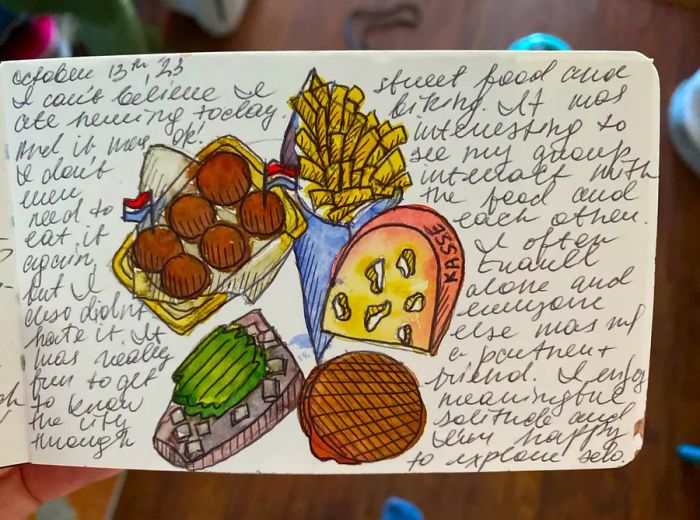 October 13th, '23
I can't believe I
ate herring today.
And it was ok!
I don't
even
need to
eat it
again,
but I
also didn't
hate it. It
was really
fun to get
to know
the city
through
street food and
biking. It was
interesting to
see my group
interact with
the food and
each other.
I often
travel
alone and
everyone
else was w/
a partner +
friend. I enjoy
meaningful
solitude and
very happy
to explore solo.
KASSE